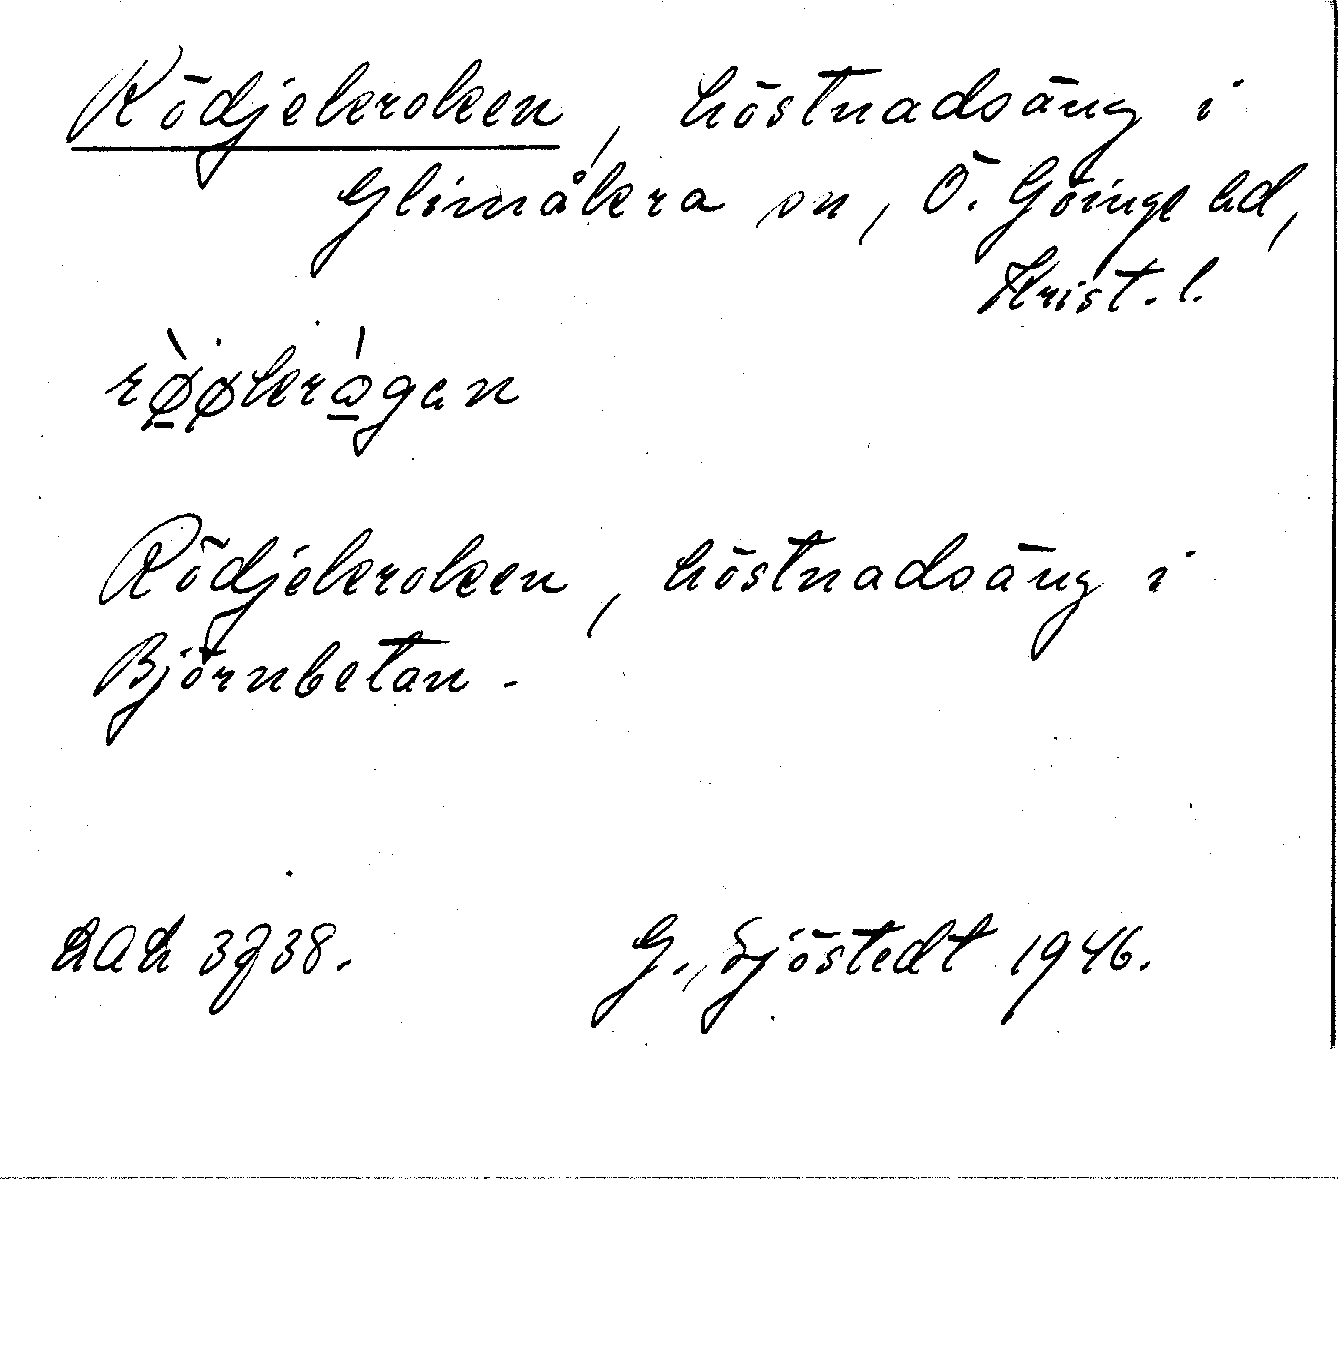 Rödjekroken, höstnadsäng i
Glimåkra sn, Ö. Göinge hd,
Krist. l.
rø̀økrágan
Rödjekroken, höstnadsäng i
Björnbetan.
3738. G. Sjöstedt 1946.